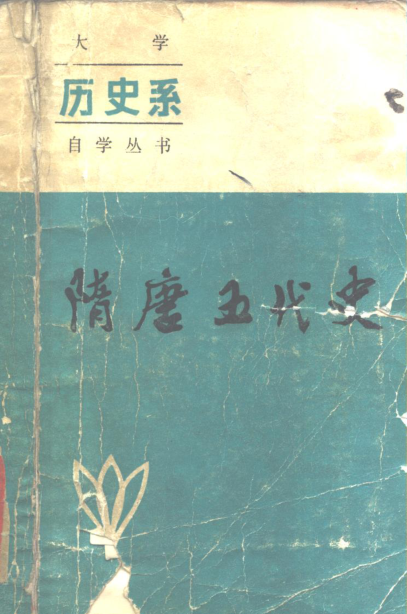 大学
历史系
自学丛书
隋唐五代史